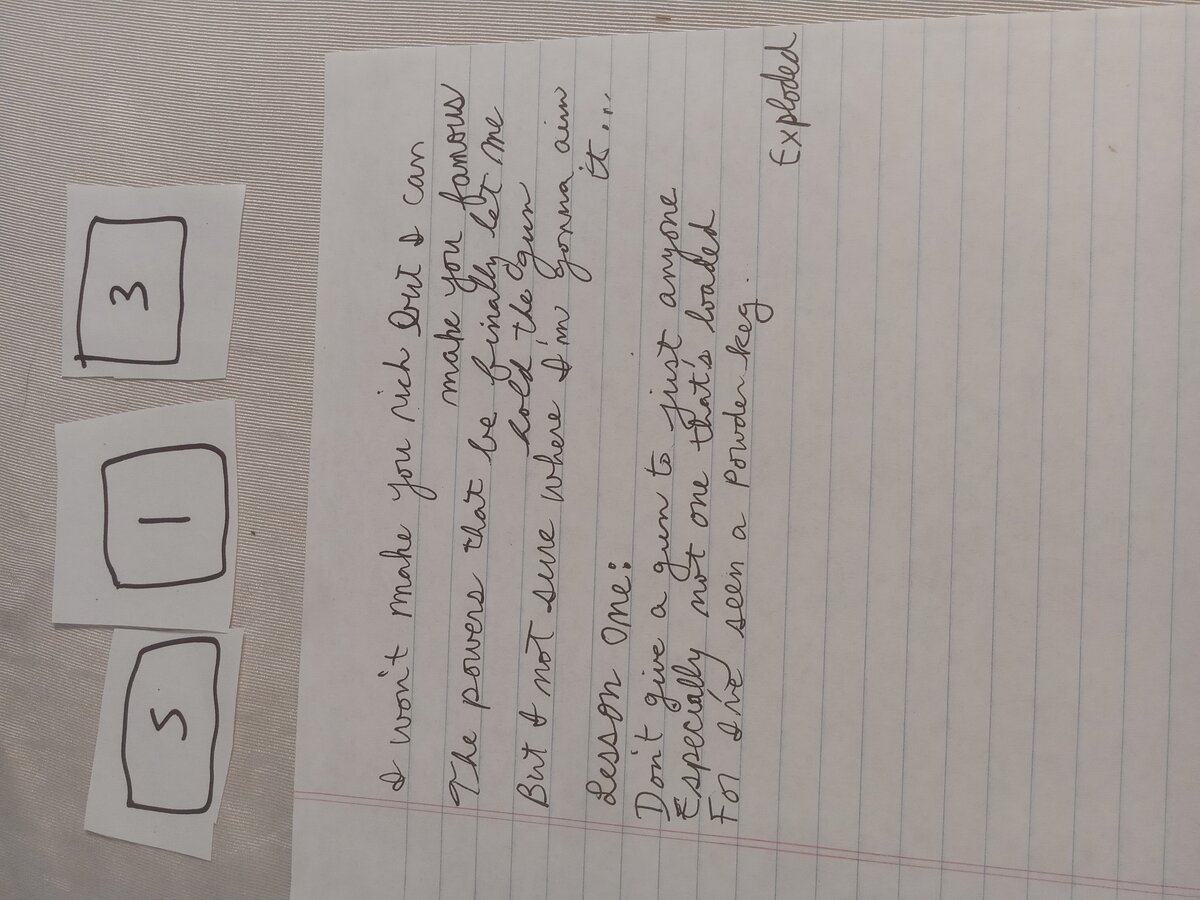 5 1 3
I won't make you rich but I can
make you famous
The powers that be finally let me
hold the gun
But I not sure where I'm gonna aim
it...
Lesson One:
Don't give a gun to just anyone
Especially not one that's loaded
For I've seen a powder keg.
Exploded